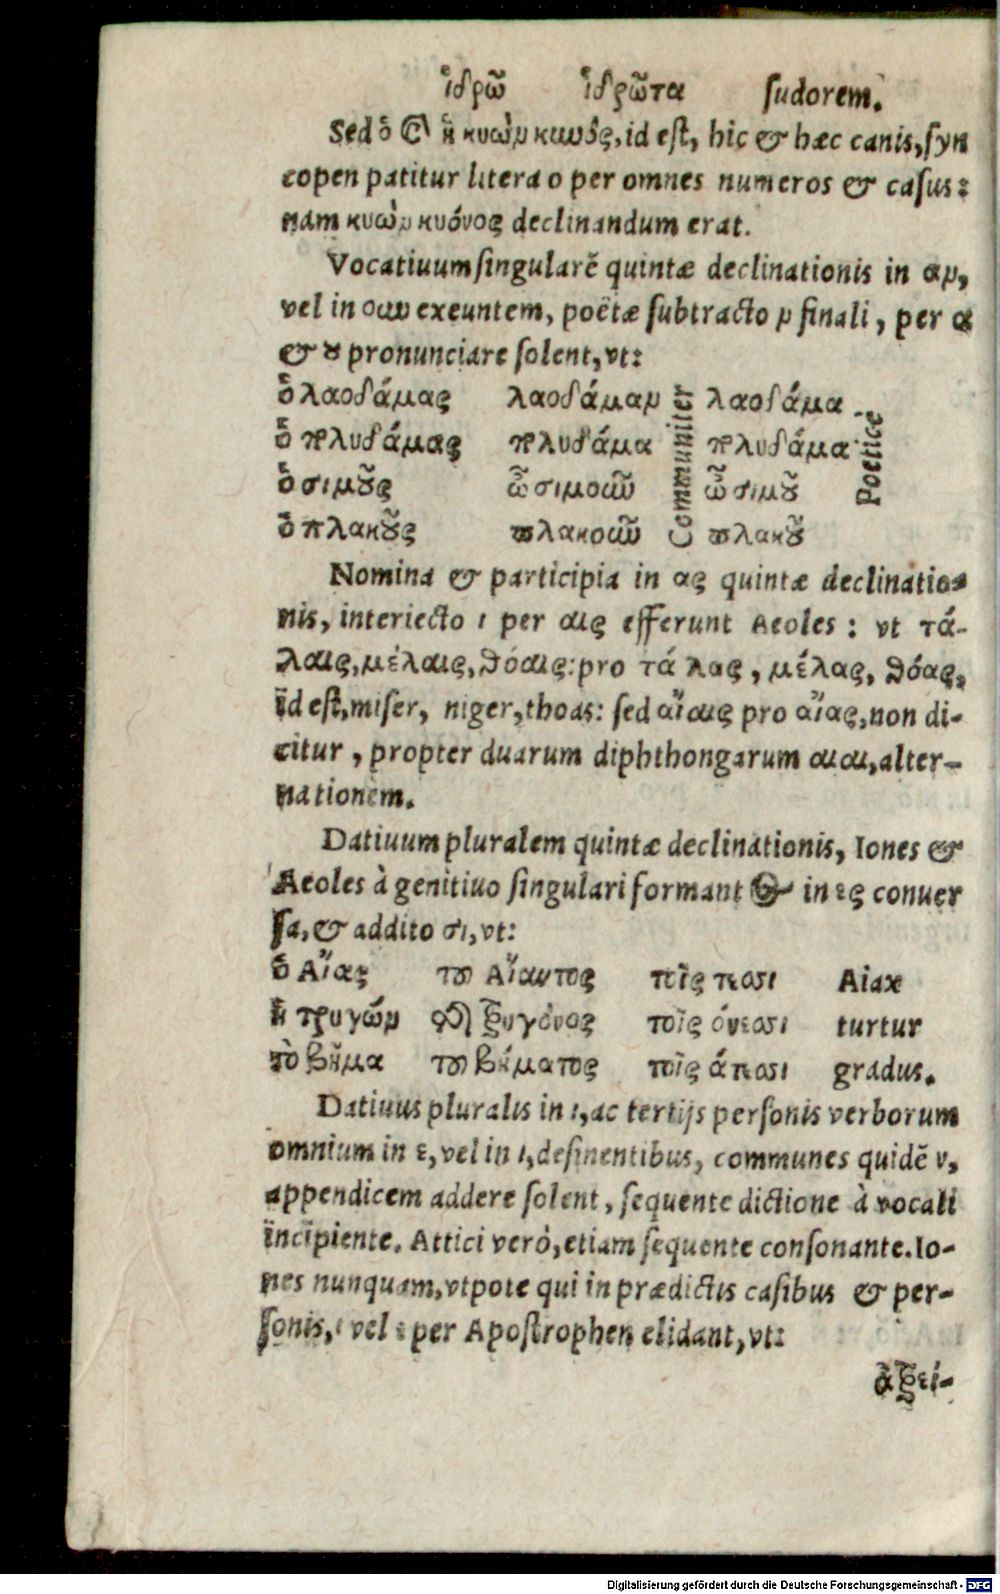 ἱδρῶ ἱδρῶτα ſudorem.
Sed ὁ καὶ ἡ κυὼν κυνὸς, id eſt, hic & hæc canis, ſyn
copen patitur litera o per omnes numeros & caſus:
nam κυὼν κυόνος declinandum erat.
Vocatiuum ſingularē quintæ declinationis in αν,
vel in ουν exeuntem, poëtæ ſubtracto ν finali, per α
& ου pronunciare ſolent, vt:
ὁ λαοδάμας λαοδάμαν λαοδάμα
ὁ πολυδάμας πολυδάμα πολυδάμα
ὁ σιμοῦς ὦ σιμοῦν ὦ σιμοῦ
ὁ πλακοῦς πλακοῦν πλακοῦ
Communiter
Poetice
Nomina & participia in ας quintæ declinatio-
nis, interiecto ι per αις efferunt Aeoles: vt τά-
λαις, μέλαις, θόαις: pro τάλας, μέλας, θόας,
id eſt, miſer, niger, thoas: ſed αἴαις pro αἴας, non di-
citur, propter duarum diphthongarum αιαι, alter-
nationem.
Datiuum pluralem quintæ declinationis, Iones &
Aeoles à genitiuo ſingulari formant ος in ες conuer
ſa, & addito σι, vt:
ὁ Αἴας τοῦ Αἴαντος τοῖς τεσσι Aiax
ἡ τρυγὼν τῆς τρυγόνος τοῖς όνεσσι turtur
τὸ βῆμα τοῦ βήματος τοῖς άτεσσι gradus.
Datiuus pluralis in ι, ac tertijs perſonis verborum
omnium in ε, vel in ι, deſinentibus, communes quidē ν,
appendicem addere ſolent, ſequente dictione à vocali
incipiente. Attici verò, etiam ſequente conſonante. Io-
nes nunquam, vtpote qui in prædictis caſibus & per-
ſonis, ι vel ε per Apoſtrophen elidant, vt:
ἀτρεί-
Digitalisierung gefördert durch die Deutsche Forschungsgemeinschaft - DFG